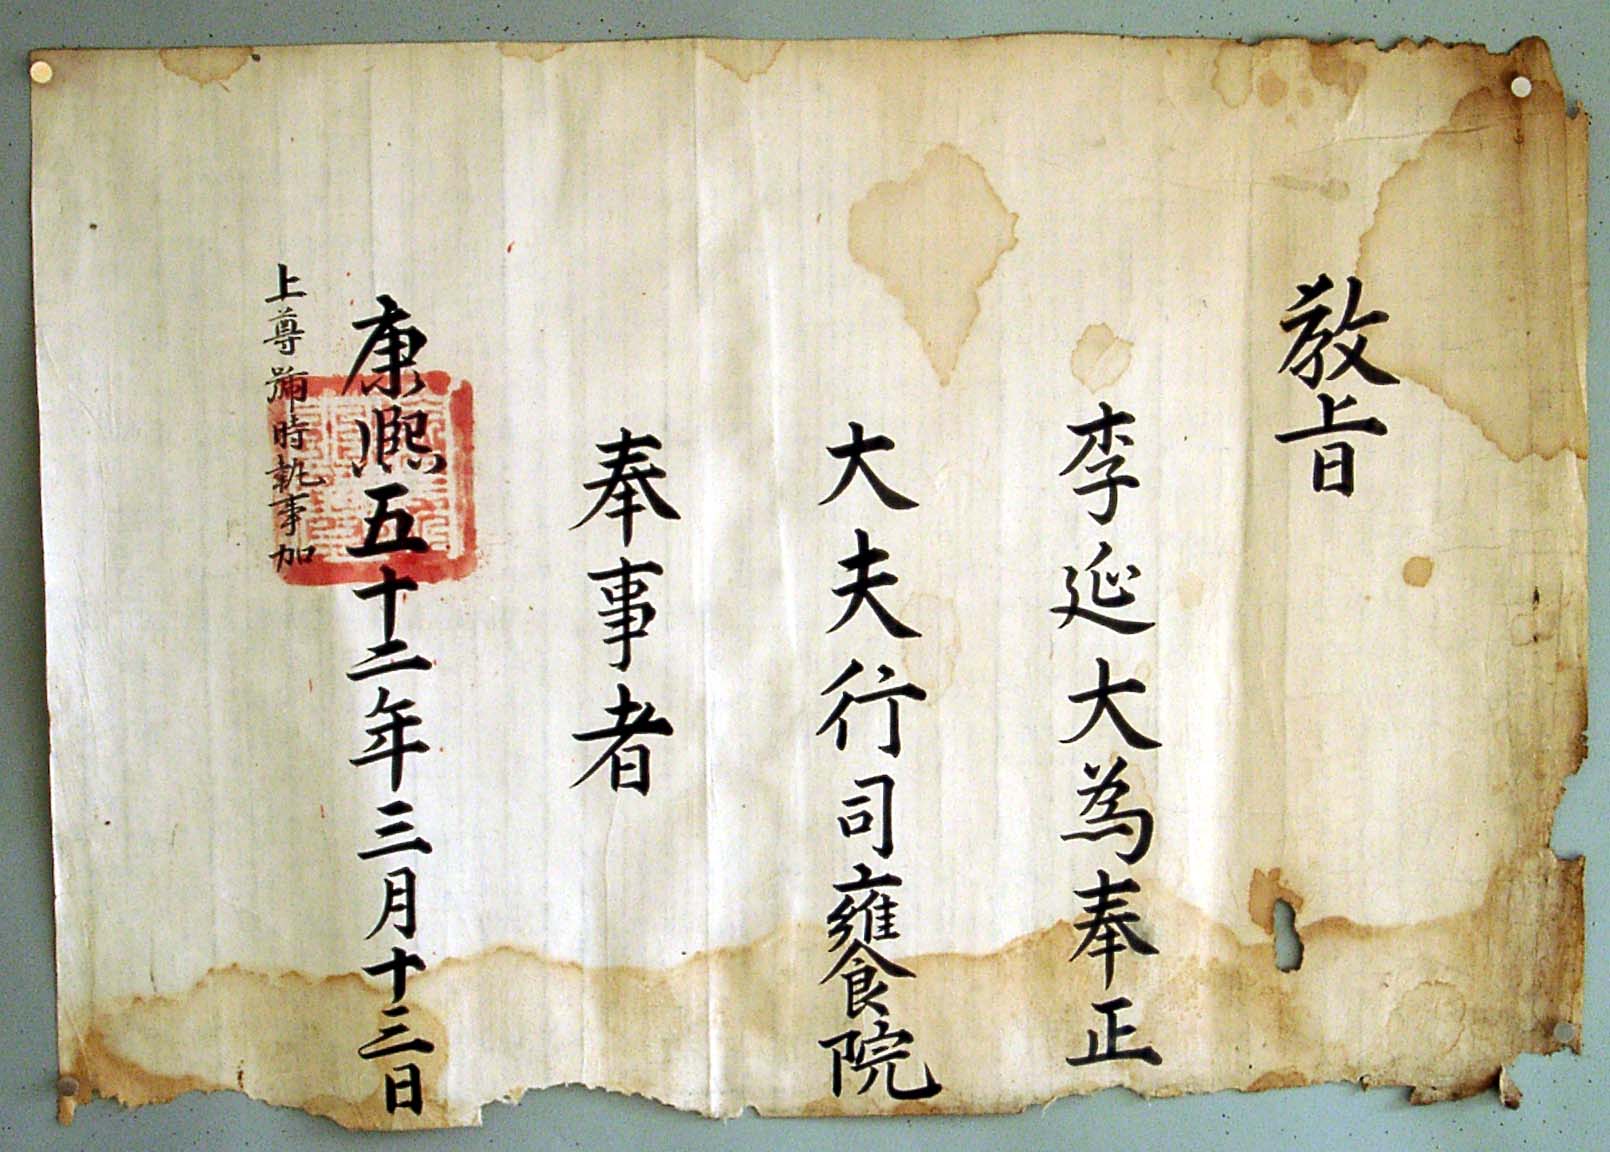 敎旨
李延大為奉正
大夫行司饔院
奉事者
康熙五十二年三月十三日
上尊號時執事加